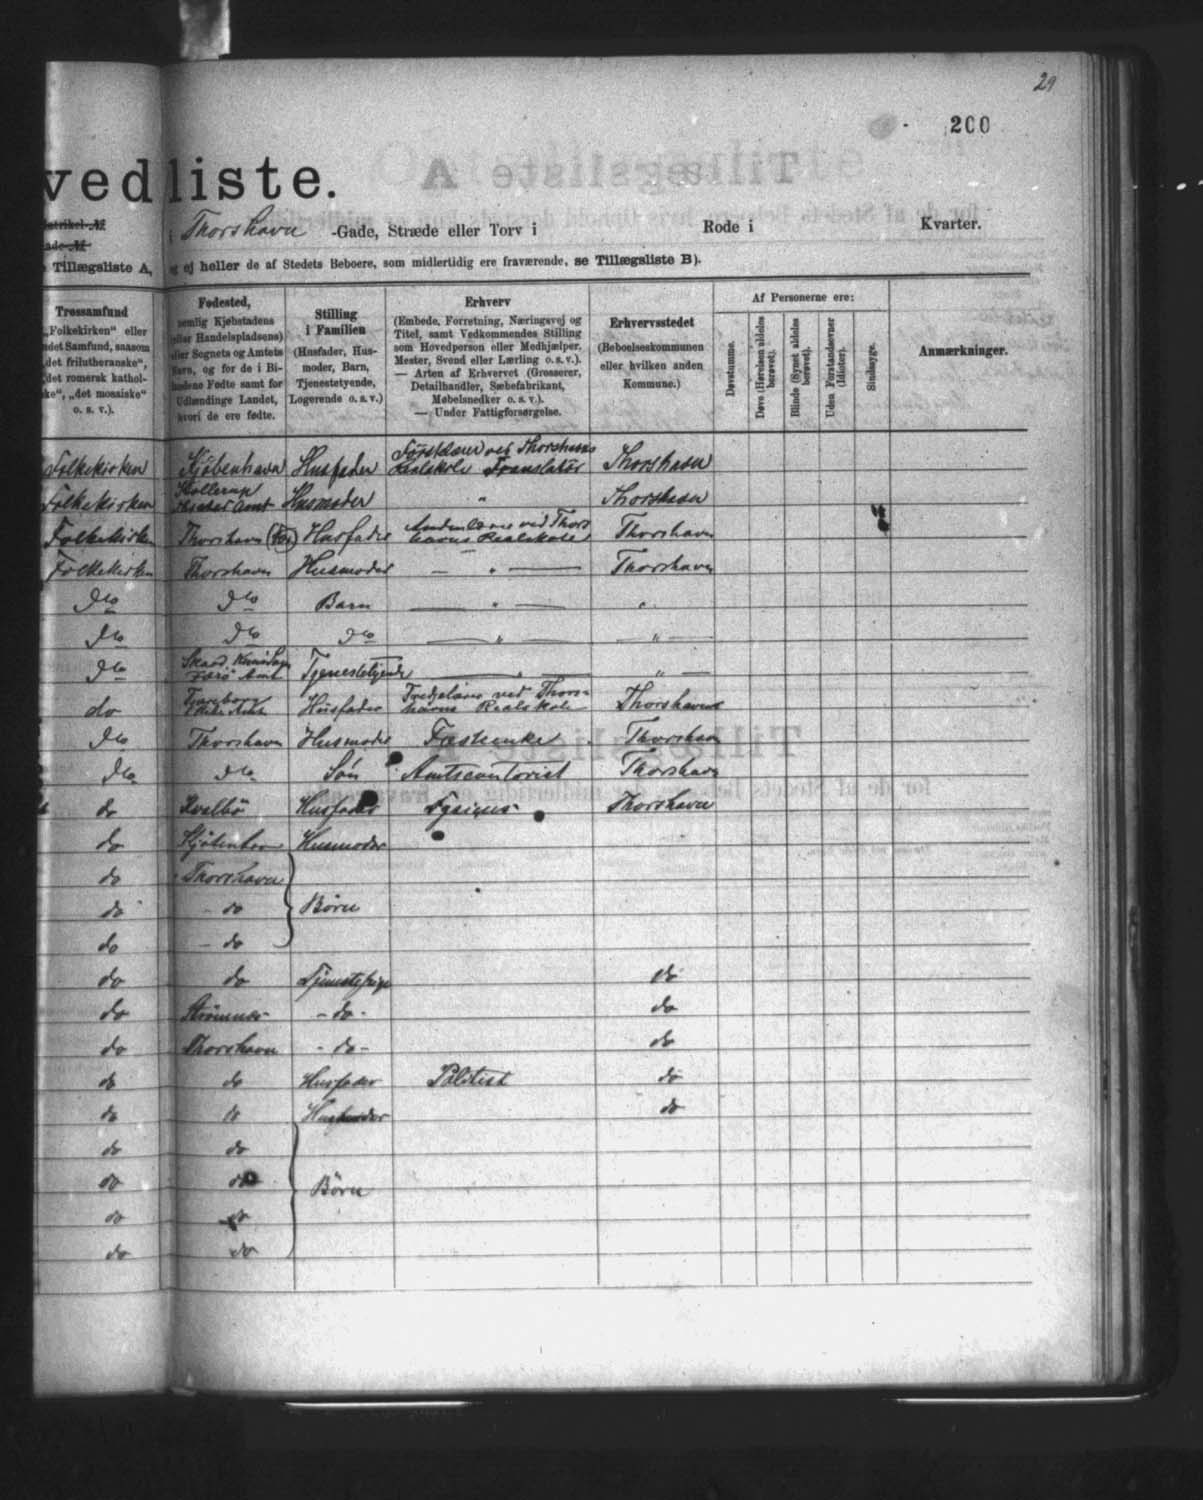 29
200
vedliste.
Matrikel-№
Gade-№
i Thorshavn -Gade, Stræde eller Torv i Rode i Kvarter.
Tillægsliste A, og ej heller de af Stedets Beboere, som midlertidig ere fraværende, se Tillægsliste B).
Trossamfund
„Folkekirken“ eller
det Samfund, saasom
„det frilutheranske“,
„det romersk kathol-
ske“, „det mosaiske“
o. s. v.).
Fødested,
nemlig Kjøbstadens
(eller Handelspladsens)
eller Sognets og Amtets
Navn, og for de i Bi-
landene Fødte samt for
Udlændinge Landet,
hvori de ere fødte.
Stilling
i Familien
(Husfader, Hus-
moder, Barn,
Tjenestetyende,
Logerende o. s. v.)
Erhverv
(Embede, Forretning, Næringsvej og
Titel, samt Vedkommendes Stilling
som Hovedperson eller Medhjælper,
Mester, Svend eller Lærling o. s. v.).
— Arten af Erhvervet (Grosserer,
Detailhandler, Sæbefabrikant,
Møbelsnedker o. s. v.).
— Under Fattigforsørgelse.
Erhvervsstedet
(Beboelseskommunen
eller hvilken anden
Kommune.)
Af Personerne ere:
Døvstumme.
Døve (Hørelsen aldeles
berøvet).
Blinde (Synet aldeles
berøvet).
Uden Forstandsevner
(Idioter).
Sindssyge.
Anmærkninger.
Folkekirken Kjøbenhavn Husfader Førstelærer ved Thorshavns Realskole Translatør Thorshavn
Folkekirken Amt Husmoder " Thorshavn
Folkekirken Thorshavn Husfader Andenlærer ved Thorshavns Realskole Thorshavn
Folkekirken Thorshavn Husmoder — " — Thorshavn
Do Do Barn — " — "
Do Do Do — " — "
Do Færø Amt Tjenestetyende — " — " —
do Husfader Tredjelærer ved Thorshavns Realskole Thorshavn
Do Thorshavn Husmoder Thorshavn
Do Do Søn Amtscontorist Thorshavn
do Kvalbø Husfader Fysicus Thorshavn
do Kjøbenhavn Husmoder
do Thorshavn
do - do Børn
do - do
do do Tjenestepige do
do Strømnæs - do - do
do Thorshavn - do - do
do do Husfader Politist do
do do Husmoder do
do do
do do Børn
do do
do do